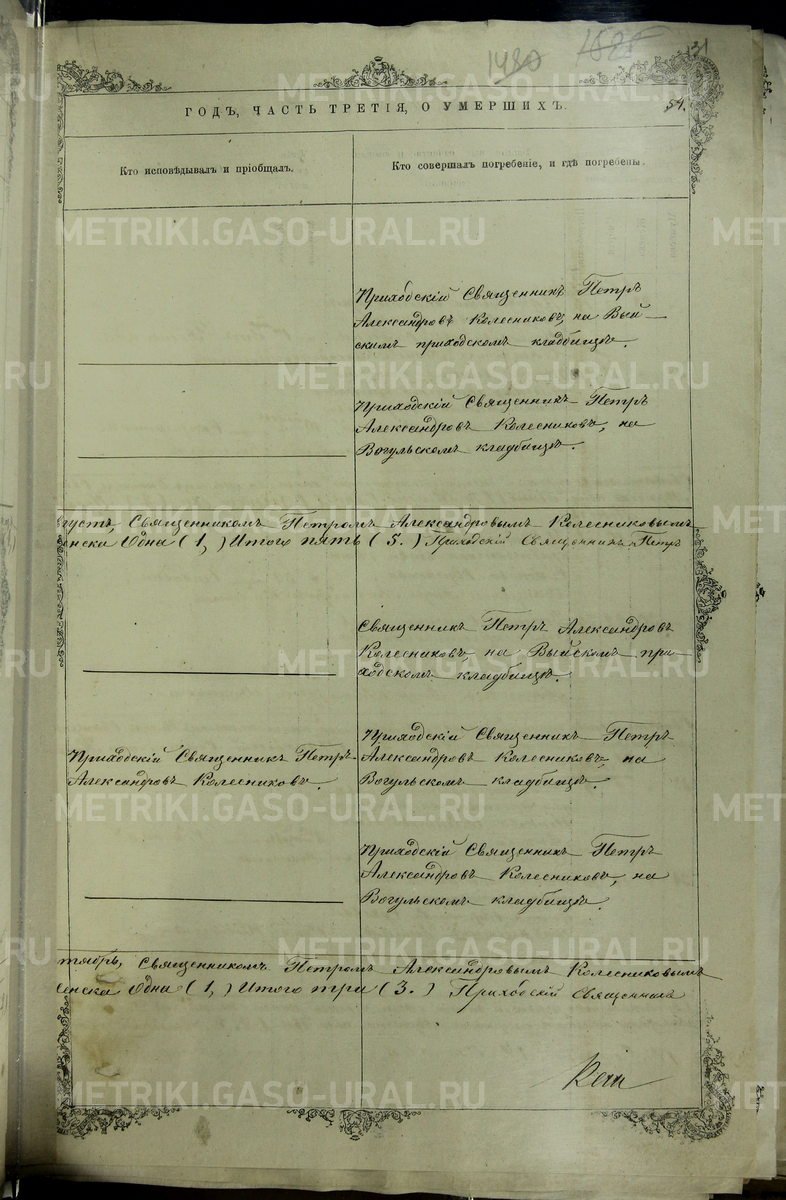 1480
54.
ГОДЪ, ЧАСТЬ ТРЕТІЯ, О УМЕРШИХЪ.
Кто исповѣдывалъ и пріобщалъ.
Кто совершалъ погребеніе, и гдѣ погребены.
Приходскій Священникъ Петръ
Александровъ Колесниковъ, на Вый-
скимъ приходскомъ кладбищѣ.
Приходскій Священникъ Петръ
Александровъ Колесниковъ, на
Вогульскомъ кладбищѣ.
густъ, Священникомъ Петромъ Александровымъ Колесниковымъ
енска Одна (1,) Итого пять (5.) Приходскій Священникъ Петръ
Священникъ Петръ Александровъ
Колесниковъ, на Выйскомъ при-
ходскомъ кладбищѣ.
Приходскій Священникъ Петръ
Александровъ Колесниковъ.
Приходскій Священникъ Петръ
Александровъ Колесниковъ, на
Вогульскомъ кладбищѣ.
Приходскій Священникъ Петръ
Александровъ Колесниковъ, на
Вогульскомъ кладбищѣ.
тябрь, Священникомъ Петромъ Александровымъ Колесниковымъ
енска Одна (1,) Итого три (3.) Приходскій Священникъ
METRIKI.GASO-URAL.RU